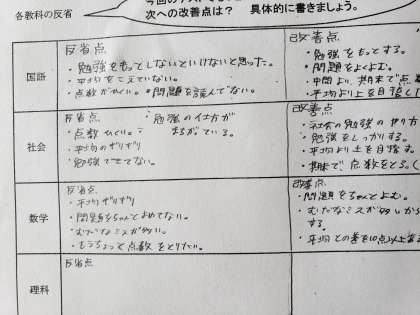 次への改善点は? 具体的に書きましょう。
各教科の反省
国語
反省点
・勉強をもっとしないといけないと思った。
・平均をこえていない。
・点数がひくい。・問題を読んでない。
改善点
・勉強をもっとする。
・問題をよくよむ。
・中間より、期末で点
・平均より上を目指し
社会
反省点
・点数ひくい。
・平均のギリギリ
・勉強できてない。
・勉強の仕方が
まちがている。
改善点
・社会の勉強のやり方
・勉強をしっかりする。
・平均より上を目指す。
・期末で、点数をとる。
数学
反省点
・平均ギリギリ
・問題をちゃんとよめてない。
・むだなミスが多い。
・もうちょっと点数をとりたい。
改善点
・問題をちゃんとよむ。
・むだなミスが多いから
する。
・平均との差を10点以上
理科
反省点